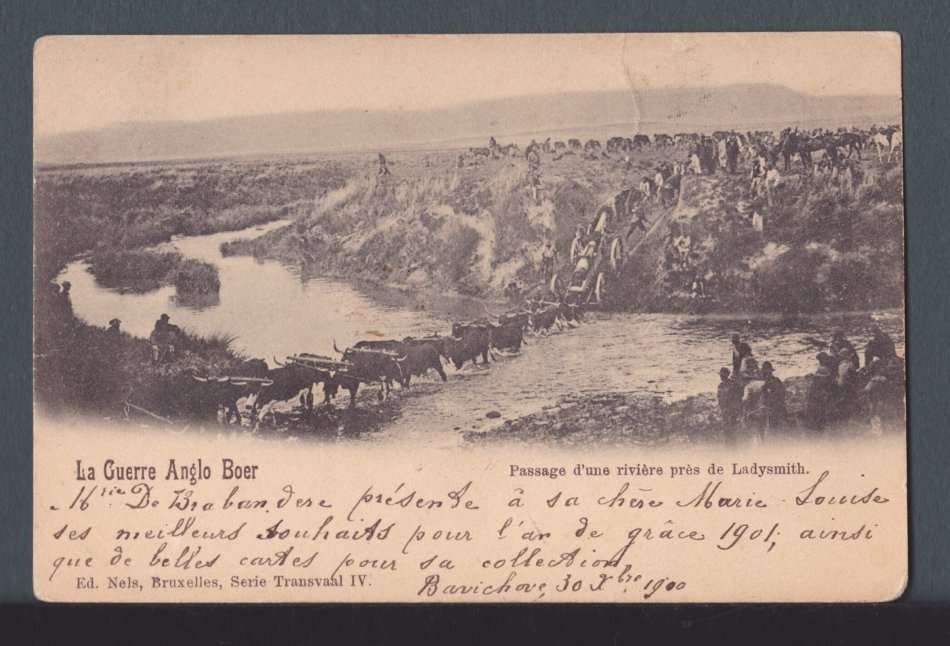 La Guerre Anglo Boer
Passage d'une rivière près de Ladysmith.
Mrie De Brabandere présente à sa chère Marie-Louise
ses meilleurs souhaits pour l'an de grâce 1901, ainsi
que de belles cartes pour sa collection,
Ed. Nels, Bruxelles, Serie Transvaal IV.
Bavichove, 30 Xbre 1900